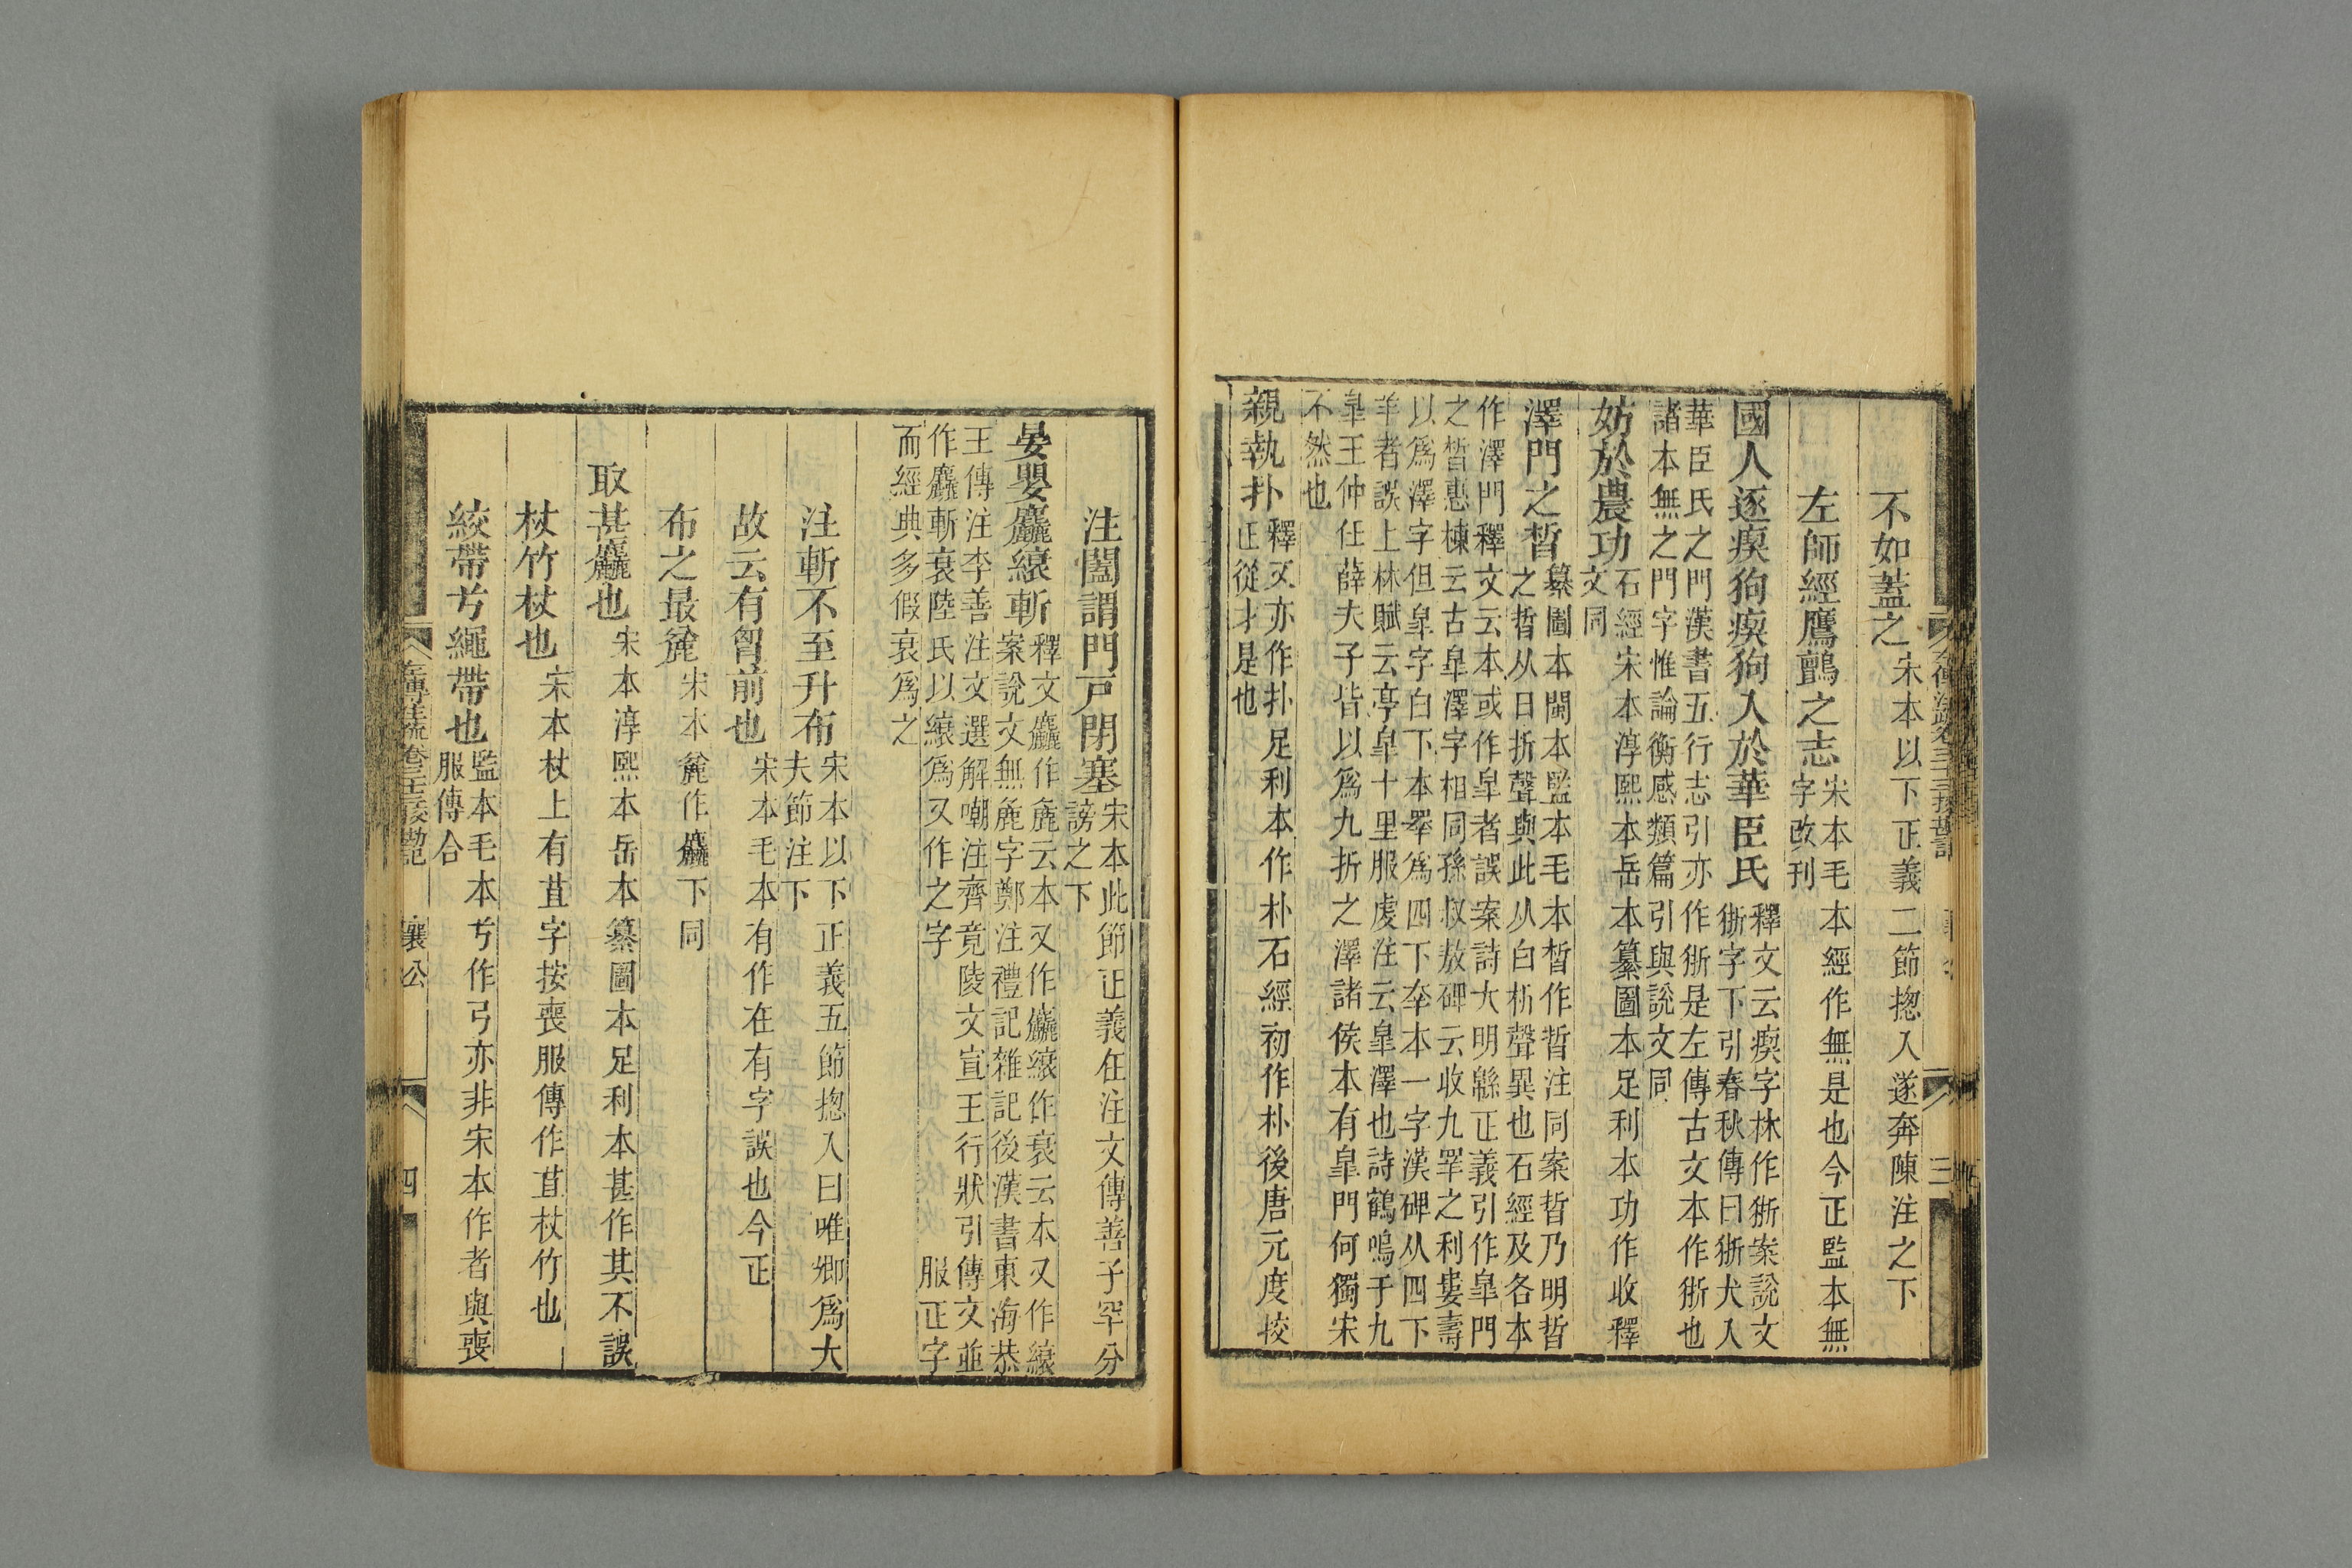 不如蓋之宋本以下正義二節揔入遂奔陳注之下
左師經鷹鸇之志宋本毛本經作無是也今正監本無
字改刊
國人逐瘈狗瘈狗入於華臣氏釋文云瘈字林作狾案說文
狾字下引春秋傳曰狾犬入
華臣氏之門漢書五行志引亦作狾是左傳古文本作狾也
諸本無之門字惟論衡感類篇引與說文同
妨於農功石經宋本淳熙本岳本纂圖本足利本功作收釋
文同
澤門之晳纂圖本閩本監本毛本晳作晢注同案晢乃明晢
之晢从日折聲與此从白析聲異也石經及各本
作澤門釋文云本或作皐者誤案詩大明緜正義引作皐門
之晳惠棟云古皐澤字相同孫叔敖碑云收九睪之利婁壽
以爲澤字但皐字白下本睪爲四下羍本一字漢碑从四下
羊者誤上林賦云亭皐十里服虔注云皐澤也詩鶴鳴于九
皐王仲任薛夫子皆以爲九折之澤諸侯本有皐門何獨宋
不然也
親執扑釋文亦作扑足利本作朴石經初作朴後唐元度挍
正從才是也
注闔謂門戸閉塞宋本此節正義在注文傳善子罕分
謗之下
晏嬰麤縗斬釋文麤作麄云本又作麤縗作衰云本又作縗
案說文無麄字鄭注禮記雜記後漢書東海恭
王傳注李善注文選解嘲注齊竟陵文宣王行狀引傳文並
作麤斬衰陸氏以縗爲又作之字 服正字
而經典多假衰爲之
注斬不至升布宋本以下正義五節揔入曰唯卿爲大
夫節注下
故云有曾前也宋本毛本有作在有字誤也今正
布之最麄宋本麄作麤下同
取甚麤也宋本淳熙本岳本纂圖本足利本甚作其不誤
杖竹杖也宋本杖上有苴字按喪服傳作苴杖竹也
絞帶芳繩帶也監本毛本芳作弓亦非宋本作者與喪
服傳合
襄公
四
三